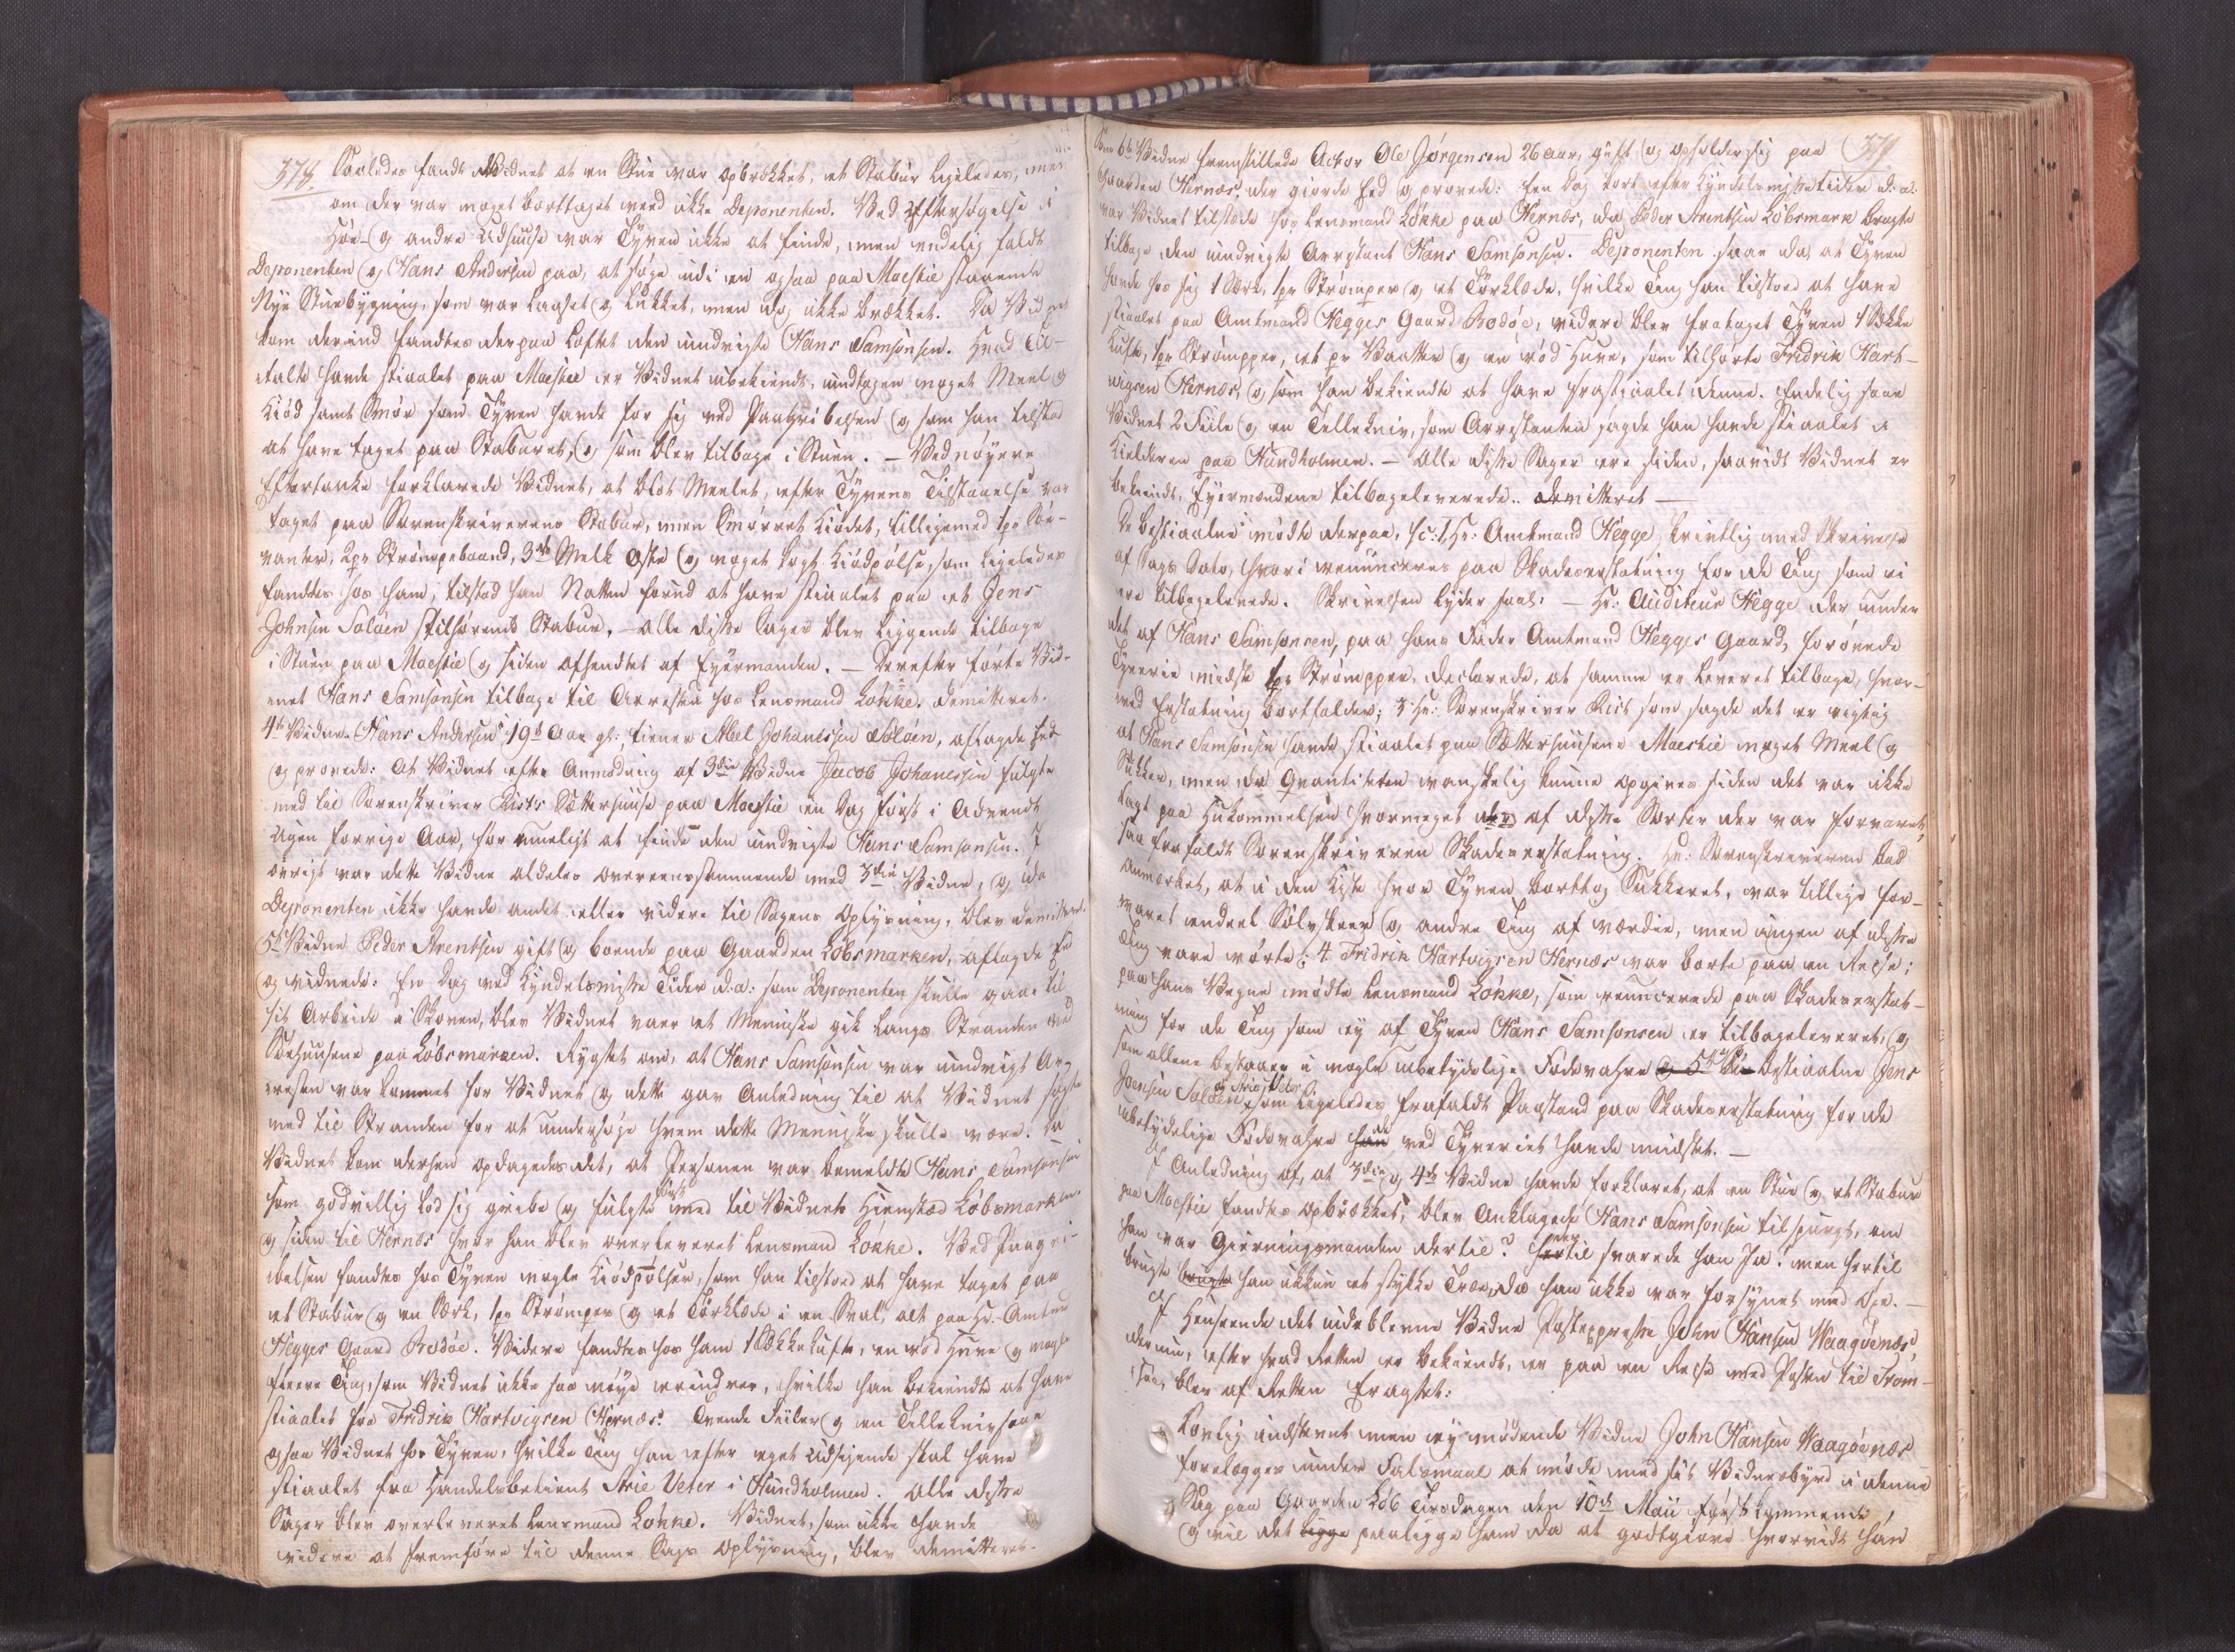 378.
Saaledes fandt Vidnet at en Stue var opbrækket, et Stabur ligeledes, men
om der var noget borttaget veed ikke Deponenten. Ved Eftersøgelse i
Høe- og andre Udhuuse var Tyven ikke at finde, men endelig faldt
Deponenten og Hans Andersen paa, at søge ind i en ogsaa paa Moestie staaende
Nye Stuebygning, som var laaset og lukket, men dog ikke brækket. Da Vidnet
kom derind fandtes der paa Loftet den undvigte Hans Samsonsen. Hvad Til-
talte havde stiaalet paa Moestie er Vidnet ubekiendt, undtagen noget Meel og
Kiød samt Smør som Tyven havde for sig ved Paagribelsen og som han tilstod
at have taget paa Staburet, og som blev tilbage i Stuen. – Ved nøyere
Eftertanke forklarede Vidnet, at blot Meelet, efter Tyvens Tilstaaelse var
taget paa Sorenskriverens Stabur, men Smørret Kiødet, tilligemed 1 pr Søe-
vanter, 2 pr Strømpebaand, 3de Melk Oste og noget kogt Kiødpølse, som ligeledes
fandtes hos ham, tilstod han Natten forud at have stiaalet paa et Jens
Johnsen Saløen tilhørende Stabur. – Alle disse Sager blev liggende tilbage
i Stuen paa Moestie og siden afhendtet af Eyermanden. – Derefter førte Vid-
net Hans Samsonsen tilbage til Arresten hos Lensmand Løkke. Demitteret.
4de Vidne. Hans Andersen, 19 Aar gl:, tiener Abel Johanesen Saløen, aflagde Eed
og provede: At Vidnet efter Anmodning af 3die Vidne Jacob Johanesen fulgte
med til Sorenskriver Rists Sætterhuuse paa Moestie en Dag først i Advendt
Ugen forrige Aar, for mueligt at finde den undvigte Hans Samsonsen. I
øvrigt var dette Vidne aldeles overeensstemmende med 3die Vidne, og da
Deponenten ikke havde andet eller videre til Sagens Oplysning, blev demitteret.
5te Vidne Peder Arentsen gift og boende paa Gaarden Løbsmarken, aflagde Eed
og vidnede: En Dag ved Kyndelsmisse Tider d: a: som Deponenten skulle gaae til
sit Arbeide i Skoven, blev Vidnet vaer et Menniske gik langs Stranden ved
Søehuusene paa Løbsmarken. Rygtet om, at Hans Samsonsen var undvigt Ar-
resten var kommet for Vidnet og dette gav Anledning til at Vidnet søgte
ned til Stranden for at undersøge hvem dette Menniske skulle være. Da
Vidnet kom derhen opdagedes det, at Personen var bemeldte Hans Samsonsen
som godvillig lod sig gribe og fulgte først med til Vidnets Hiemsted Løbsmarken
og siden til Kernæs hvor han blev overleveret Lensmand Løkke. Ved Paagri-
belsen fandtes hos Tyven nogle Kiødpølser, som han tilstoed at have taget paa
et Stabur og en Særk, 1 pr Strømper og et Tørklæde i en Sval, alt paa Hr. Amtmd
Hegges Gaard Rodøe. Videre fandtes hos ham 1 Kufte, en rød Hue og nogle
fleere Ting, som Vidnet ikke saa nøye erindrer, hvilke han bekiendte at have
stiaalet fra Fridrik Hartvigsen Kernæs. Tvende Fiiler og en Tellekniv saae
ogsaa Vidnet hos Tyven, hvilke Ting han efter eget Udsigende skal have
stiaalet fra Handelsbetient Arie Veter i Hundholmen. Alle disse
Sager blev overleveret Lensmand Løkke. Vidnet, som ikke havde
videre at fremføre til denne Sags Oplysning, blev demitteret.
379
Som 6te Vidne fremstillede Actor Ole Jørgensen 26 Aar, gift og opholder sig paa
Gaarden Kernæs, der giorde Eed og provede: En Dag kort efter Kyndelsmisse Tider d: a:
var Vidnet tilstæde hos Lensmand Løkke paa Kernæs, da Peder Arentsen Løbsmark bragte
tilbage den undvigte Arrestant Hans Samsonsen. Deponenten saae da, at Tyven
havde hos sig 1 Særk, 1 pr Strømper og et Tørklæde, hvilke Ting han tilstoed at have
stiaalet paa Amtmand Hegges Gaard Rodøe, videre blev frataget Tyven 1
Kufte, 1 pr Strømpper, et pr Vaatter og en rød Hue, som tilhørte Fridrik Hart-
vigsen Kernæs, og som han bekiendte at have frastiaalet denne. Endelig saae
Vidnet 2 Fiile og en Tellekniv, som Arrestanten sagde han havde stiaalet i
Kielderen paa Hundholmen. – Alle disse Sager ere siden, saavidt Vidnet er
bekiendt, Eyermændene tilbageleverede. demitteret –
De bestiaalne mødte derpaa, sc: 1, Hr: Amtmand Hegge, skrivtlig med Skrivelse
af Dags Dato, hvori renunceres paa Skadeserstatning for de Ting som ei
ere tilbageleverede. Skrivelsen lyder saal: – Hr: Auditeur Hegge der under
det af Hans Samsonsen, paa hans Fader Amtmand Hegges Gaard, forøvede
Tyverie midste 1 pr Strømpper, declarede, at samme er leveret tilbage, hvor-
ved Erstatning bortfalder; 3 Hr: Sorenskriver Rist som sagde det er rigtig
at Hans Samsonsen havde stiaalet paa Sætterhuusene Moestie noget Meel og
Sukker, men da Qvantiteten vanskelig kunne opgives siden det var ikke
lagt paa Hukommelsen hvormeget der af disse Sorter der var forvaret,
saa frafaldt Sorenskriveren Skadeserstatning. Hr: Sorenskriveren bad
anmærket, at i den Kiste hvor Tyven borttog Sukkeret, var tillige for-
varet endeel Sølvskeer og andre Ting af værdie, men ingen af disse
Ting vare rørte; 4. Fridrik Hartvigsen Kernæs var borte paa en Reise;
paa hans Vegne mødte Lensmand Løkke, som renuncerede paa Skadeserstat-
ning for de Ting som ey af Tyven Hans Samsonsen er tilbageleveret, og
som allene bestaaer i nogle ubetydelige Fødevahre og 5te bestiaalne Jens
Joensen Saløen og Arie Veter, som ligeledes frafaldt Paastand paa Skadeserstatning for de
ubetydelige Fødevahre han de ved Tyveriet havde midstet. –
I Anledning af, at 3die og 4de Vidne havde forklaret, at en Stue og et Stabur
paa Moestie fandtes opbrækket, blev Anklagede Hans Samsonsen tilspurgt, om
han var Gierningsmanden dertil? hertil svarede han Ja! men hertil
brugte brugte han ikkun et stykke Træe, da han ikke var forsynet med Øxe. –
I Henseende det udeblevne Vidne John Hansen Waagøenæs,
der nu, efter hvad Retten er bekiendt, er paa en Reise med Posten til Trom-
søe, blev af Retten fragtet:
Lovlig indstevnt men ey mødende Vidne John Hansen Waagøenæs
forelægges under Falsmaal at møde med sit Vidnesbyrd i denne
Sag paa Gaarden Løb Tirsdagen den 10de Maii førstkommende
og vil det ligge paaligge ham da at godtgiøre hvorvidt han